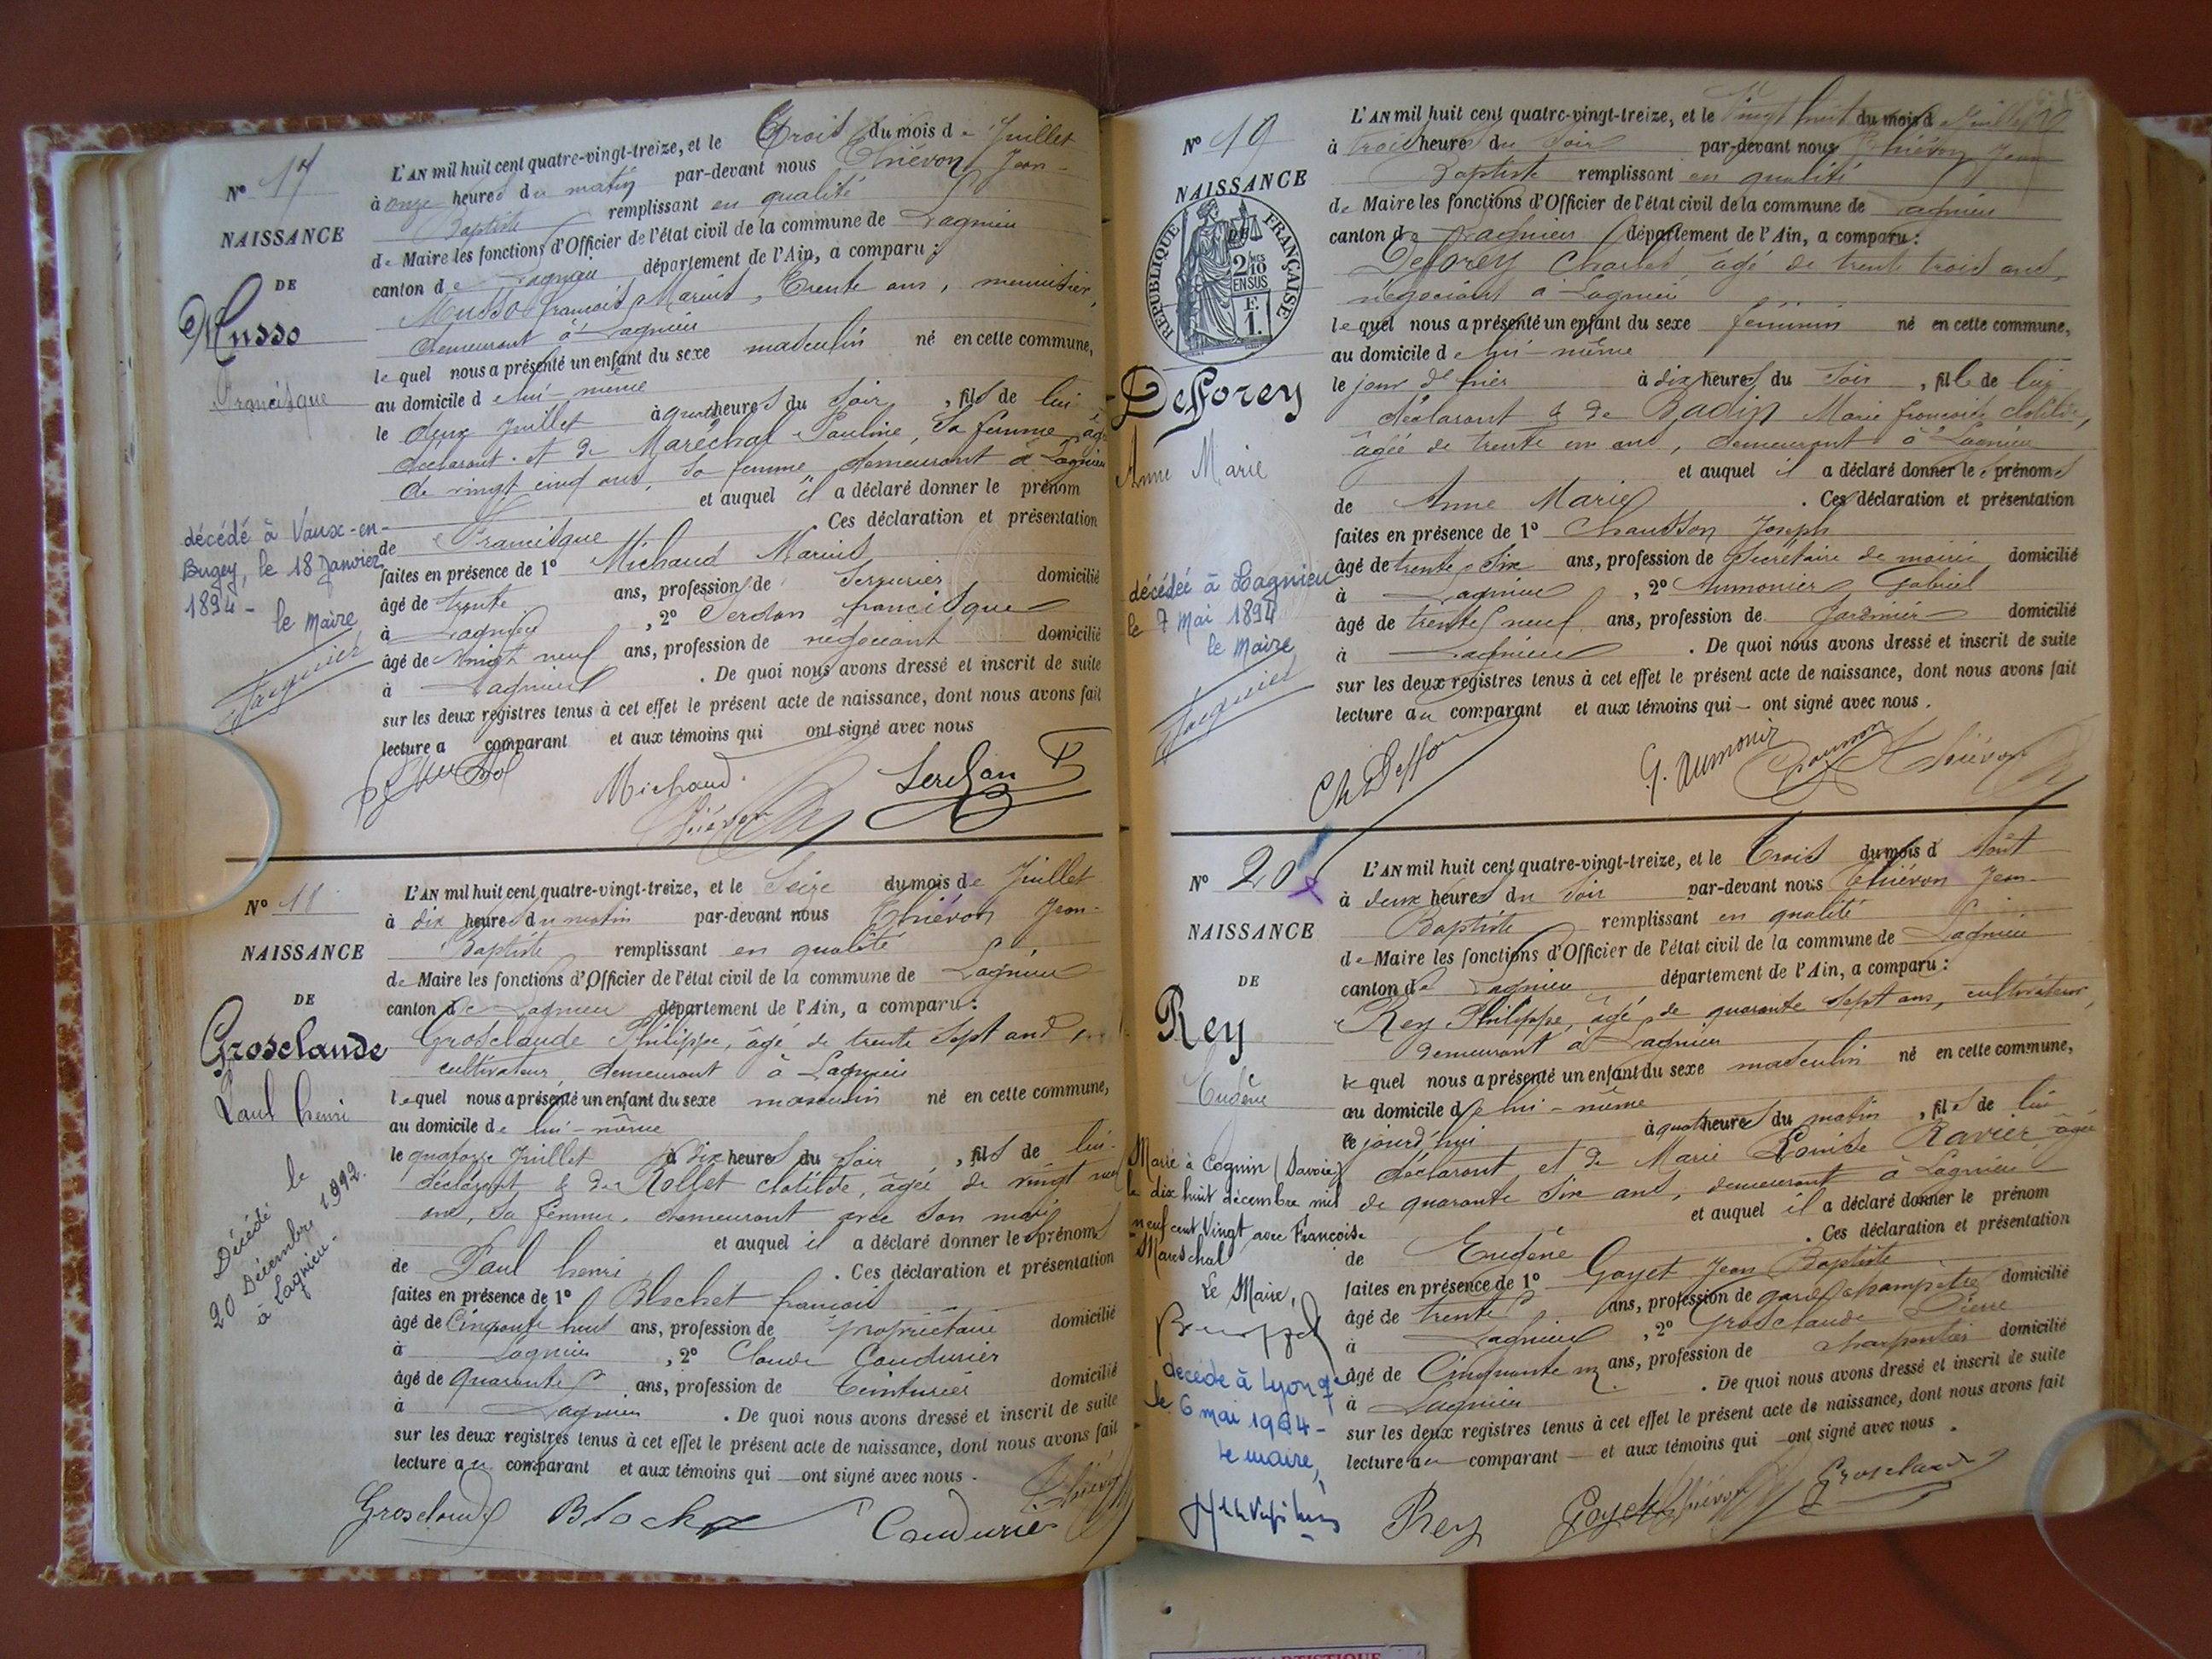 N° 17
NAISSANCE
DE
Musso
Francisque
décédé à Vaux-en-
Bugey, le 18 Janvier
1894 -
le Maire
L'AN mil huit cent quatre-vingt-treize, et le Trois du mois de Juillet
à onze heures du matin par-devant nous Thiévon Jean-
Baptiste remplissant en qualité
de Maire les fonctions d'Officier de l'état civil de la commune de Lagnieu
canton de Lagnieu département de l'Ain, a comparu :
Musso françois Marius, Trente ans, menuisier,
demeurant à Lagnieu
lequel nous a présenté un enfant du sexe masculin né en cette commune,
au domicile de lui-même
le deux Juillet à quatre heures du soir, fils de lui
déclarant et de Maréchal Pauline, sa femme, âgée
de vingt cinq ans, sa femme demeurant à Lagnieu
et auquel il a déclaré donner le prénom
de Francisque . Ces déclaration et présentation
faites en présence de 1° Michaud Marius
âgé de trente ans, profession de Serrurier domicilié
à Lagnieu , 2° Serdan francisque
âgé de vingt neuf ans, profession de négociant domicilié
à Lagnieu . De quoi nous avons dressé et inscrit de suite
sur les deux registres tenus à cet effet le présent acte de naissance, dont nous avons fait
lecture a comparant et aux témoins qui ont signé avec nous
Michaud Serdan
Thiévon
N° 18
NAISSANCE
DE
Grosclaude
Paul henri
Décédé le
20 Décembre 1992.
à Lagnieu -
L'AN mil huit cent quatre-vingt-treize, et le Seize du mois de Juillet
à dix heures du matin par-devant nous Thiévon Jean-
Baptiste remplissant en qualité
de Maire les fonctions d'Officier de l'état civil de la commune de Lagnieu
canton de Lagnieu département de l'Ain, a comparu :
Grosclaude Philippe, âgé de trente sept ans,
cultivateur, demeurant à Lagnieu
lequel nous a présenté un enfant du sexe masculin né en cette commune,
au domicile de lui-même
le quatorze Juillet à dix heures du soir, fils de lui-
déclarant & de Rollet clotilde, âgée de vingt neuf
ans, sa femme, demeurant avec son mari
et auquel il a déclaré donner les prénoms
de Paul henri . Ces déclaration et présentation
faites en présence de 1° Blachet françois
âgé de Cinquante huit ans, profession de propriétaire domicilié
à Lagnieu , 2° Claude Coudurier
âgé de quarante ans, profession de Teinturier domicilié
à Lagnieu . De quoi nous avons dressé et inscrit de suite
sur les deux registres tenus à cet effet le présent acte de naissance, dont nous avons fait
lecture au comparant et aux témoins qui — ont signé avec nous .
Grosclaude Coudurier Thiévon
N° 19
NAISSANCE
DE
RÉPUBLIQUE FRANÇAISE
2/10 EN SUS
F.
1.
Defforey
Anne Marie
décédée à Lagnieu
le 7 Mai 1894
le Maire
L'AN mil huit cent quatre-vingt-treize, et le Vingt huit du mois de Juillet
à trois heures du soir par-devant nous Thiévon Jean
Baptiste remplissant en qualité
de Maire les fonctions d'Officier de l'état civil de la commune de Lagnieu
canton de Lagnieu département de l'Ain, a comparu :
Defforey Charles âgé de trente trois ans,
négociant à Lagnieu
lequel nous a présenté un enfant du sexe féminin né en cette commune,
au domicile de lui-même
le jour d'hier à dix heures du soir, fille de lui
déclarant & de Badin Marie françoise clotilde,
âgée de trente un ans, demeurant à Lagnieu
et auquel il a déclaré donner les prénoms
de Anne Marie . Ces déclaration et présentation
faites en présence de 1° Chausson Joseph
âgé de trente six ans, profession de Secrétaire de mairie domicilié
à Lagnieu , 2° Aumonier Gabriel
âgé de trente neuf ans, profession de Jardinier domicilié
à Lagnieu . De quoi nous avons dressé et inscrit de suite
sur les deux registres tenus à cet effet le présent acte de naissance, dont nous avons fait
lecture au comparant et aux témoins qui — ont signé avec nous .
G. Aumonier Thiévon
N° 20
NAISSANCE
DE
Rey
Eugène
Marié à Cognin (Savoie)
le dix huit décembre mil
neuf cent Vingt avec Françoise
Mareschal
Le Maire,
décédé à Lyon
le 6 mai 1964 -
le maire,
L'AN mil huit cent quatre-vingt-treize, et le Trois du mois d'Août
à deux heures du soir par-devant nous Thiévon Jean-
Baptiste remplissant en qualité
de Maire les fonctions d'Officier de l'état civil de la commune de Lagnieu
canton de Lagnieu département de l'Ain, a comparu :
Rey Philippe, âgé de quarante sept ans, cultivateur,
demeurant à Lagnieu
lequel nous a présenté un enfant du sexe masculin né en cette commune,
au domicile de lui-même
ce jourd'hui à quatre heures du matin, fils de lui
déclarant et de Marie Louise Ravier âgée
de quarante six ans, demeurant à Lagnieu
et auquel il a déclaré donner le prénom
de Eugène . Ces déclaration et présentation
faites en présence de 1° Goyet Jean Baptiste
âgé de trente ans, profession de garde champêtre domicilié
à Lagnieu , 2° Grosclaude Pierre
âgé de Cinquante un ans, profession de charpentier domicilié
à Lagnieu . De quoi nous avons dressé et inscrit de suite
sur les deux registres tenus à cet effet le présent acte de naissance, dont nous avons fait
lecture au comparant — et aux témoins qui — ont signé avec nous .
Rey Goyet Thiévon Grosclaude